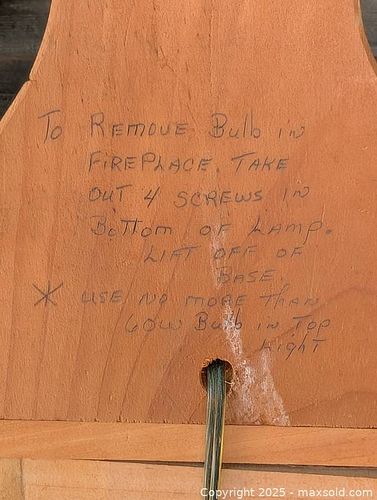 To REMOVE Bulb in
FiREPLACE. TAKE
OUT 4 SCREWS IN
BoTTom OF LAMP.
LIFT OFF OF
BASE.
* USE NO MORE Than
60W Bulb in Top
Right
Copyright © 2025 - maxsold.com